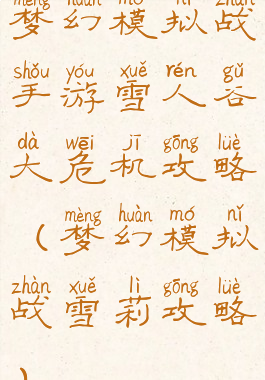 mèng huàn mó nǐ zhàn
梦幻模拟战
shǒu yóu xuě rén gǔ
手游雪人谷
dà wēi jī gōng lüè
大危机攻略
mèng huàn mó nǐ
(梦幻模拟
zhàn xuě lì gōng lüè
战雪莉攻略
)